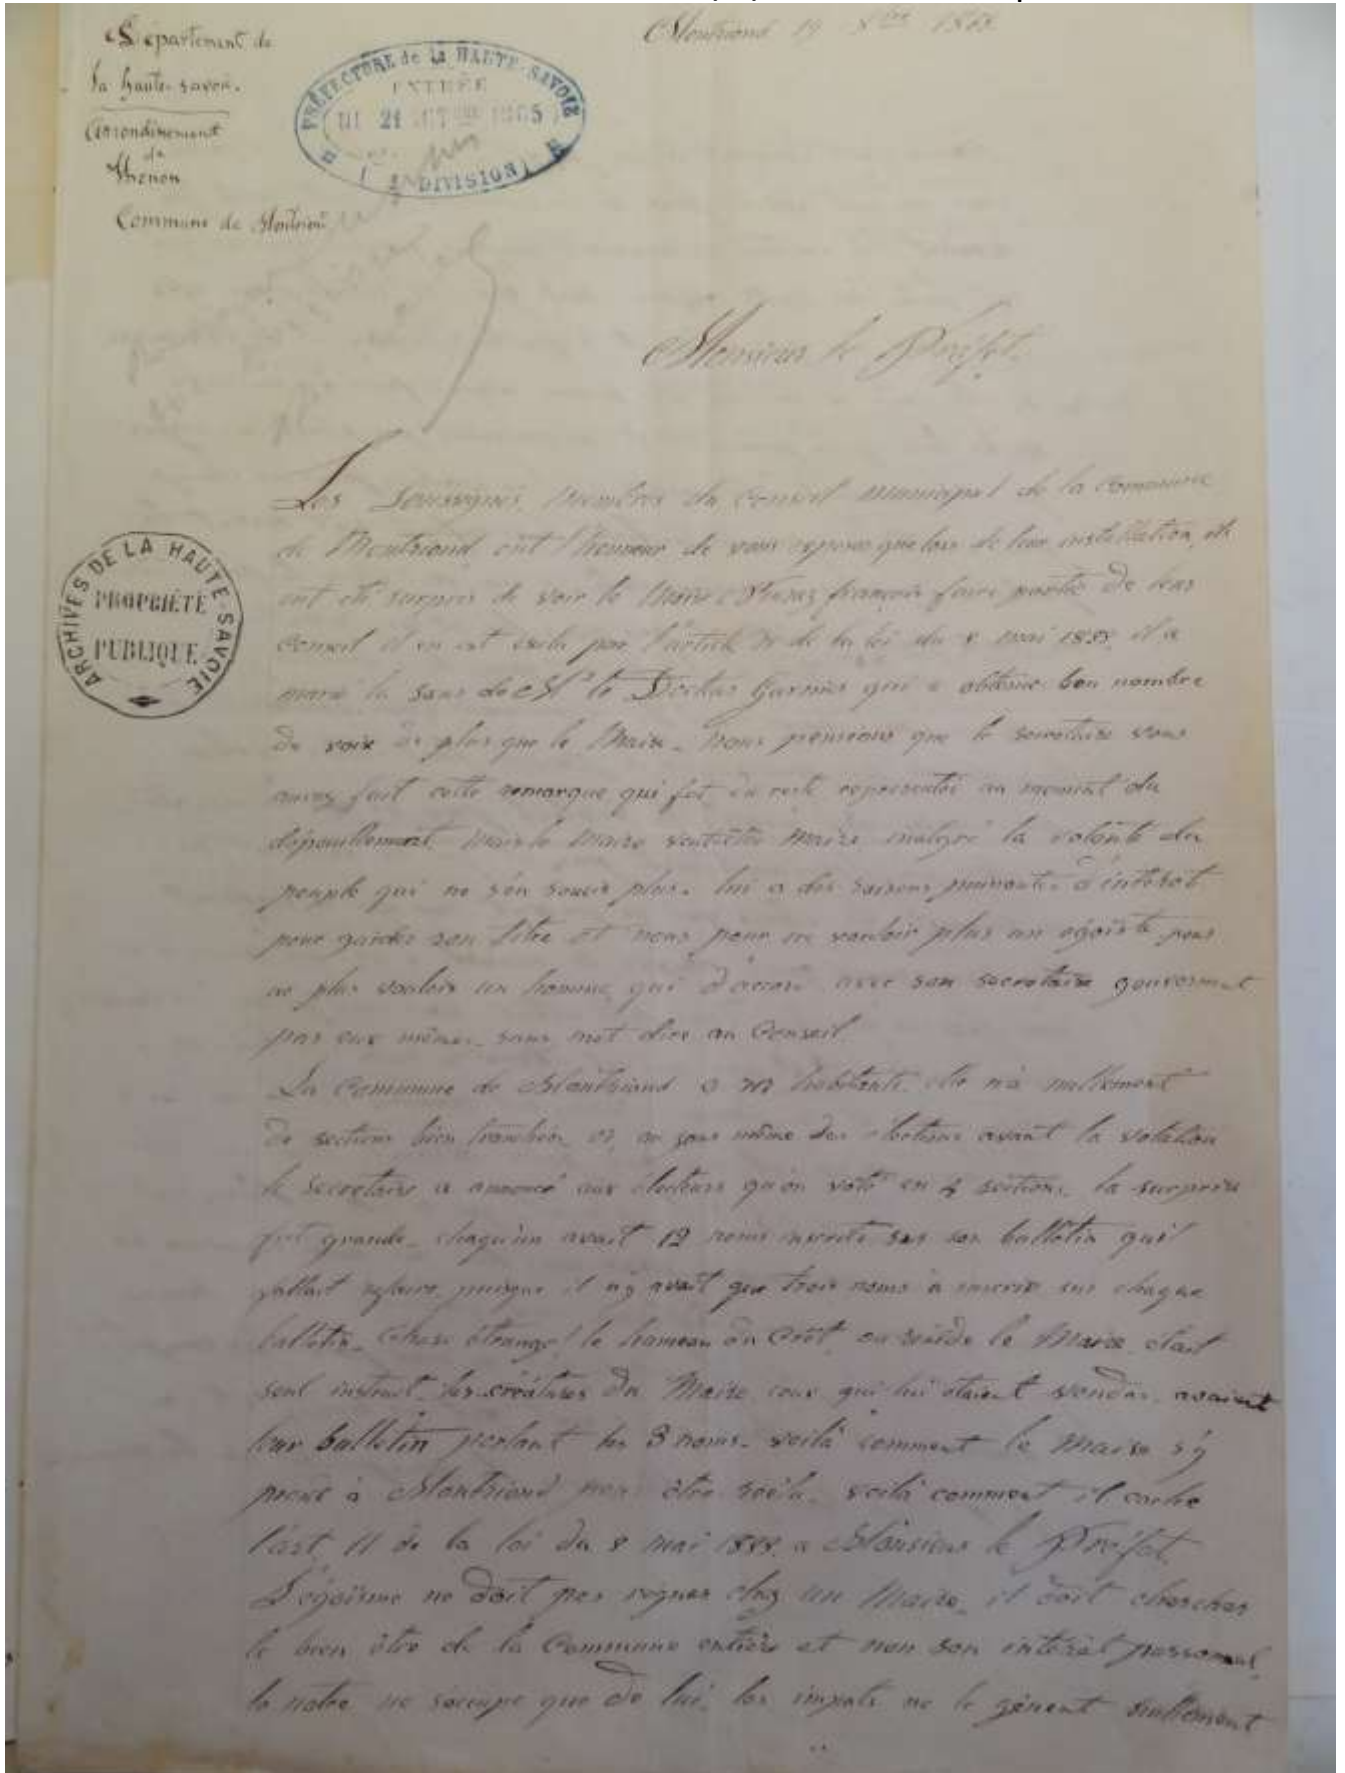 Département de
la haute-savoie.
Arrondissement
de
Thonon
Commune de Montriond
Montriond 19 8bre
PRÉFECTURE de la HAUTE-SAVOIE
ENTRÉE
21
DIVISION
Monsieur le Préfet
ARCHIVES DE LA HAUTE-SAVOIE
PROPRIÉTÉ
PUBLIQUE
Les Soussignés, Membres du Conseil Municipal de la Commune
de Montriond, ont l'honneur de vous exposer que lors de leur installation, ils
ont été surpris de voir le Maire françois faire partie de leur
Conseil il en est exclu par l'article 11 de la loi du 8 mai il a
marié la sœur de Mr le Docteur Garnier qui a obtenu bon nombre
de voix de plus que le Maire. nous pensions que le secrétaire vous
aurez fait cette remarque qui fut du reste representée au moment du
dépouillement, mais le Maire veut être Maire malgré la volonté du
peuple qui ne s'en soucie plus. lui a des raisons puissantes d'intérêt
pour garder son titre et nous pour ne vouloir plus un égoïste pour
ne plus vouloir un homme, qui d'accord avec son secretaire gouvernent
par eux mêmes, sans mot dire au Conseil.
La Commune de Montriond a habitants elle n'a nullement
de sections bien tranchées, or, au jour même des élections avant la votation
le Secretaire a annoncé aux électeurs qu'on vote en 4 sections, la surprise
fut grande. chaqu'un avait 12 noms inscrits sur son balletin qu'il
fallait refaire, puisque il n'y avait que trois noms à inscrire sur chaque
balletin. Chose étrange! le hameau du Crêt, ou réside le Maire, était
seul instruit, les créatures du Maire, ceux qui lui étaient vendus, avaient
leur balletin portant les 3 noms. voilà comment le Maire s'y
prend à Montriond pour être voilà comment il cache
l'art 11 de la loi du 8 mai a Monsieur le Préfet.
L'égoïsme ne doit pas régner chez un Maire, il doit chercher
le bien être de la Commune entière et non son intérêt personnel,
le notre ne s'occupe que de lui, les impots ne le gênent nullement